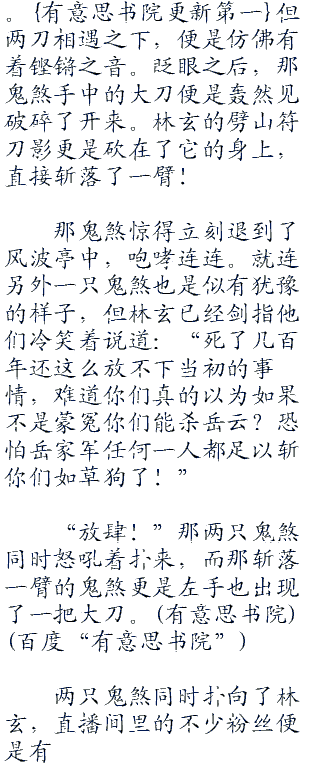 。{有意思书院更新第一}但
两刀相遇之下，便是仿佛有
着铿锵之音。眨眼之后，那
鬼煞手中的大刀便是轰然见
破碎了开来。林玄的劈山符
刀影更是砍在了它的身上，
直接斩落了一臂！
那鬼煞惊得立刻退到了
风波亭中，咆哮连连。就连
另外一只鬼煞也是似有犹豫
的样子，但林玄已经剑指他
们冷笑着说道：“死了几百
年还这么放不下当初的事
情，难道你们真的以为如果
不是蒙冤你们能杀岳云？恐
怕岳家军任何一人都足以斩
你们如草狗了！”
“放肆！”那两只鬼煞
同时怒吼着扑来，而那斩落
一臂的鬼煞更是左手也出现
了一把大刀。(有意思书院)
(百度“有意思书院”)
两只鬼煞同时扑向了林
玄，直播间里的不少粉丝便
是有